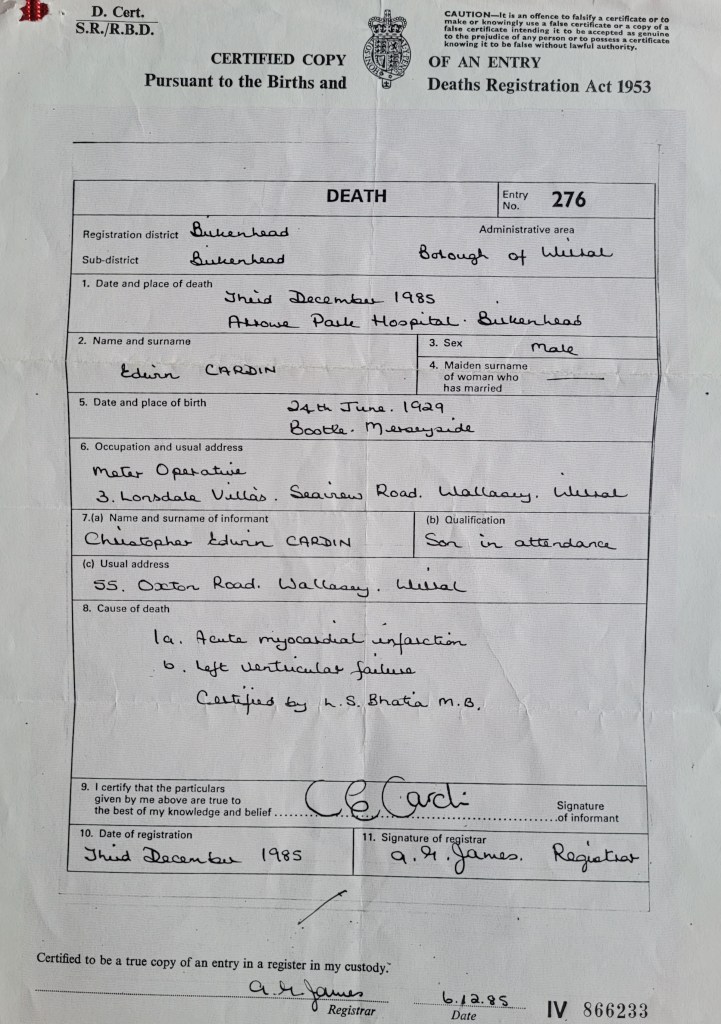 D. Cert.
S.R./R.B.D.
CAUTION—It is an offence to falsify a certificate or to
make or knowingly use a false certificate or a copy of a
false certificate intending it to be accepted as genuine
to the prejudice of any person or to possess a certificate
knowing it to be false without lawful authority.
CERTIFIED COPY OF AN ENTRY
Pursuant to the Births and Deaths Registration Act 1953
DEATH
Entry No. 276
Registration district Birkenhead
Administrative area
Sub-district Birkenhead
Borough of Wirral
1. Date and place of death
Third December 1985
Arrowe Park Hospital. Birkenhead
2. Name and surname
Edwin CARDIN
3. Sex Male
4. Maiden surname
of woman who
has married
5. Date and place of birth 24th June. 1929
Bootle. Merseyside
6. Occupation and usual address
Meter Operative
3. Lonsdale Villas. Seaview Road. Wallasey. Wirral
7.(a) Name and surname of informant
Christopher Edwin CARDIN
(b) Qualification
Son in attendance
(c) Usual address
55. Oxton Road. Wallasey. Wirral
8. Cause of death
1a. Acute myocardial infarction
b. Left ventricular failure
Certified by L.S. Bhatia M.B.
9. I certify that the particulars
given by me above are true to
the best of my knowledge and belief
C E Cardi
Signature
of informant
10. Date of registration
Third December 1985
11. Signature of registrar
Registrar
Certified to be a true copy of an entry in a register in my custody.
Registrar
6.12.85
Date
IV 866233